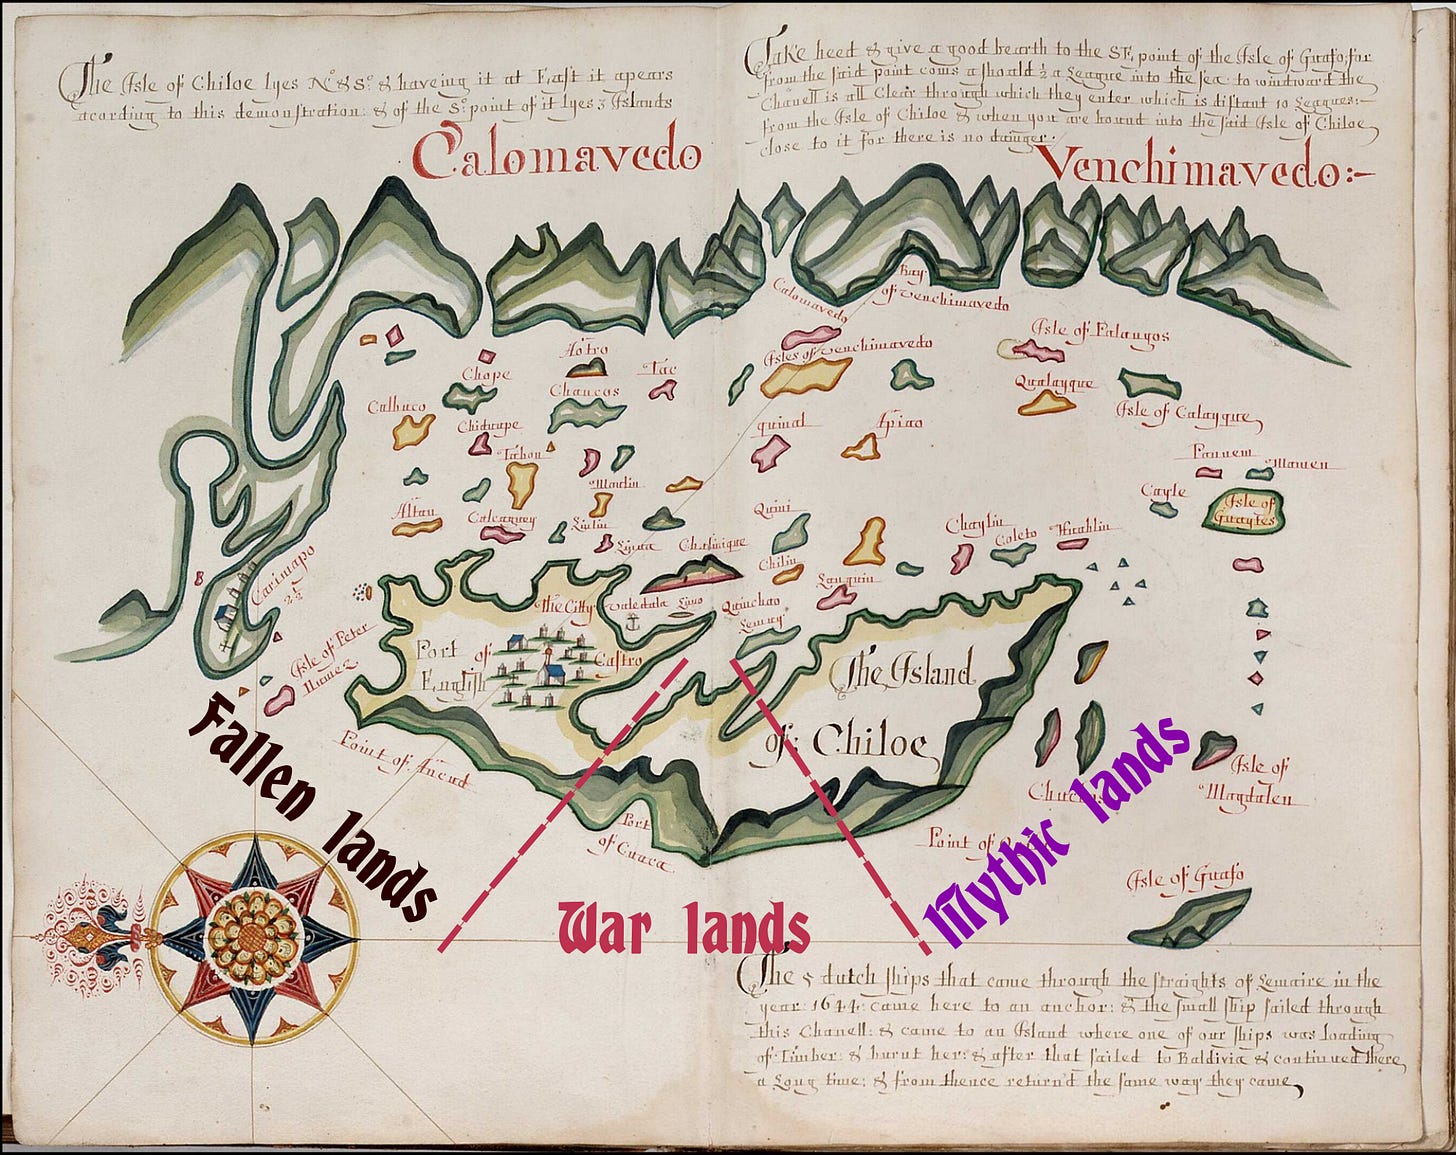 The Isle of Chiloe lyes No & So. & haveing it at East it apears
acording to this demonstration: & of the So. point of it lyes 3 Islands
Take heed & give a good bearth to the SE. point of the Isle of Guafo; for
from the said point coms a shoald ½ a League into the sea to windward the
Chanell is all Clear through which they enter which is distant 10 Leagues:
from the Isle of Chiloe & when you are bound into the said Isle of Chiloe
close to it for there is no danger.
Calomavedo
Venchimavedo:-
Calomavedo
Bay
of Venchimavedo
Isle of Palangos
Isles of Venchimavedo
Hotro
Tac
Chope
Chaucos
Qualayque
Isle of Calayque
Calbuco
Chiduupe
quinal
Apiao
Tabon
Maulin
Pannem
Mamen
Cayle
Isle of
Guaytes
Altau
Calcaguey
Liulin
Quini
Chaylin
Coleto
Linua
Chalinique
Chiliu
Lauquiu
Carimapo
2½
The Citty
of
Castro
Quinchao
Lemuy
Port
English
Isle of Peter
Nunez
The Island
of: Chiloe
Point of Ancud
Port
of Cucca
Isle of
Magdalen
Point of
Isle of Guafo
Fallen lands
War lands
Mythic lands
The 5 dutch ships that came through the straights of Lemaire in the
year: 1644: came here to an anchor: & the small ship sailed through
this Chanell: & came to an Island where one of our ships was loading
of Timber: & burnt her: & after that sailed to Baldivia & continued there
a Long time: & from thence return'd the same way they came